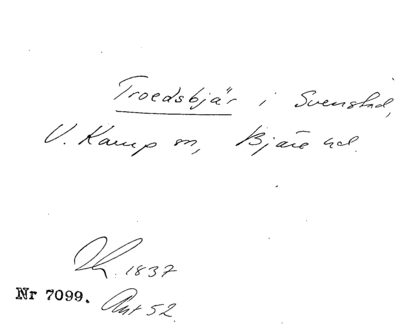 Troedsbjär i Svenstad,
V. Karup sn, Bjäre hd.
1837
Nr 7099. Ant 52.